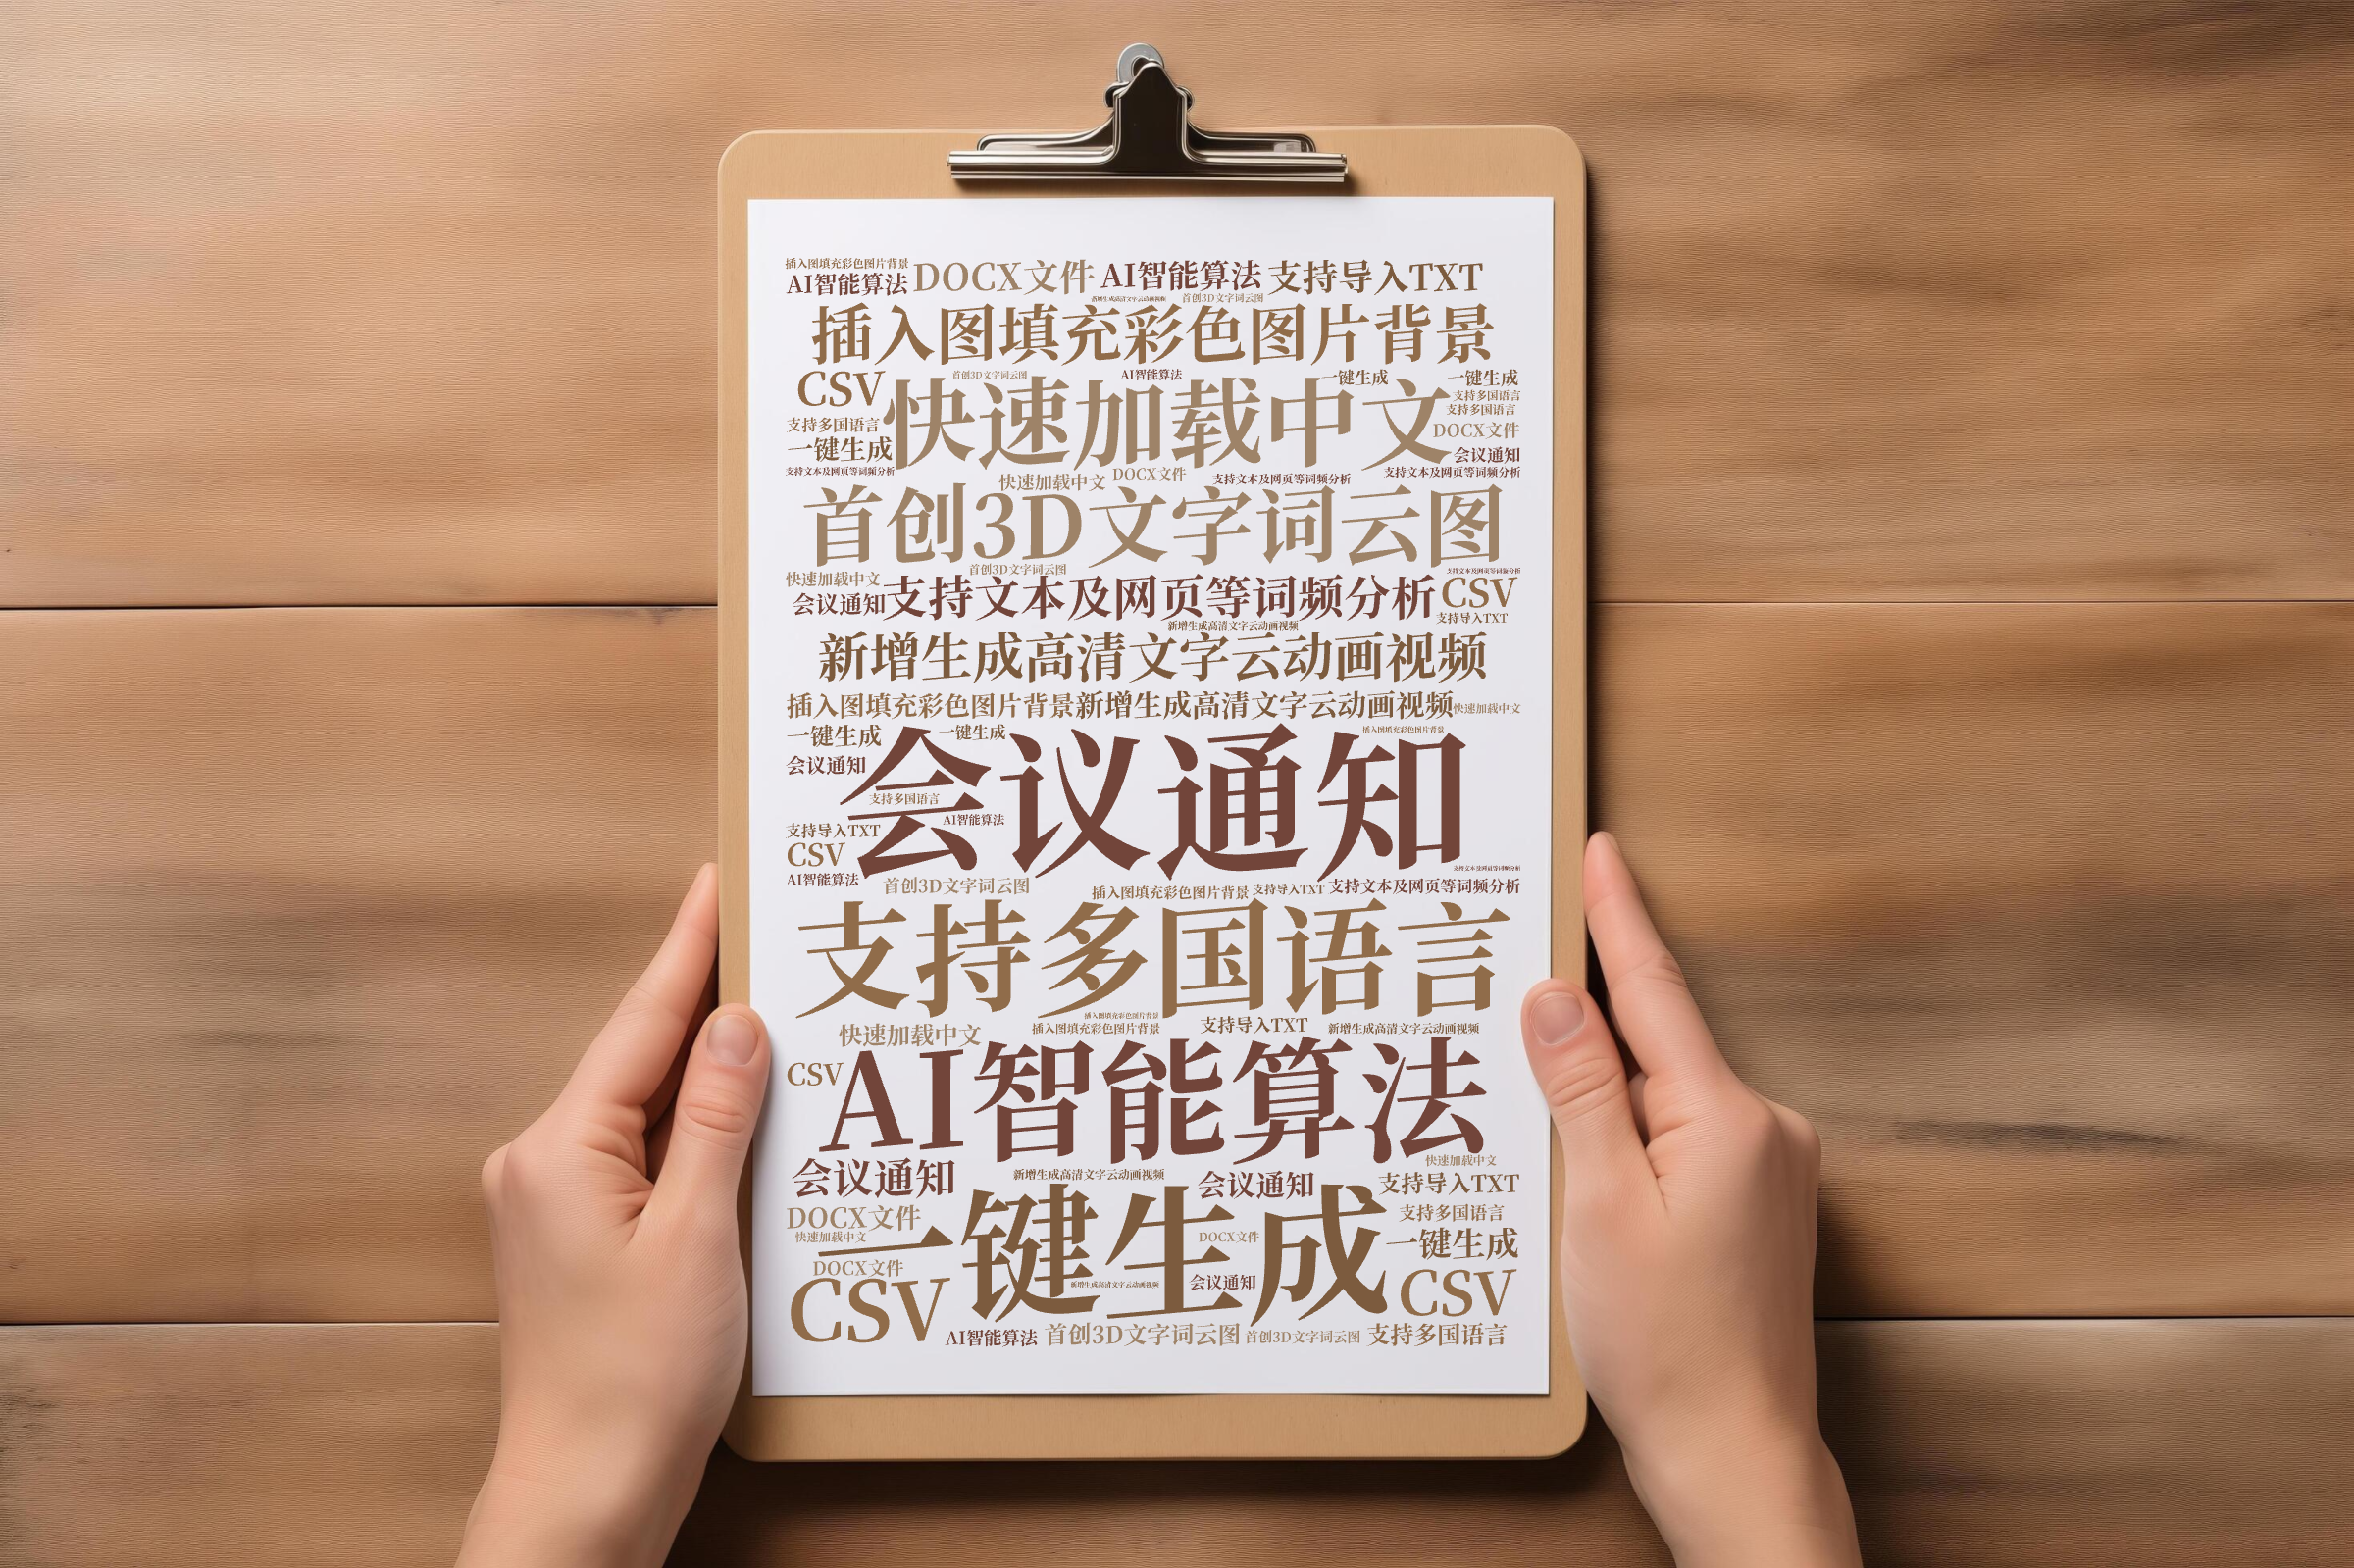 插入图填充彩色图片背景
AI智能算法 DOCX文件 AI智能算法 支持导入TXT
新增生成高清文字云动画视频 首创3D文字词云图
插入图填充彩色图片背景
CSV 首创3D文字词云图 AI智能算法 一键生成 一键生成
快速加载中文
支持多国语言
支持多国语言
支持多国语言 DOCX文件
一键生成 会议通知
支持文本及网页等词频分析 快速加载中文 DOCX文件 支持文本及网页等词频分析 支持文本及网页等词频分析
首创3D文字词云图
快速加载中文 首创3D文字词云图 支持文本及网页等词频分析
会议通知 支持文本及网页等词频分析 CSV
新增生成高清文字云动画视频 支持导入TXT
新增生成高清文字云动画视频
插入图填充彩色图片背景 新增生成高清文字云动画视频 快速加载中文
一键生成 一键生成 插入图填充彩色图片背景
会议通知
会议通知
支持多国语言
AI智能算法
支持导入TXT
CSV
支持文本及网页等词频分析
AI智能算法 首创3D文字词云图 插入图填充彩色图片背景 支持导入TXT 支持文本及网页等词频分析
支持多国语言
插入图填充彩色图片背景
快速加载中文 插入图填充彩色图片背景 支持导入TXT 新增生成高清文字云动画视频
CSV AI智能算法
快速加载中文
会议通知 新增生成高清文字云动画视频 会议通知 支持导入TXT
DOCX文件 支持多国语言
快速加载中文 一键生成 DOCX文件 一键生成
DOCX文件 新增生成高清文字云动画视频 会议通知
CSV CSV
AI智能算法 首创3D文字词云图 首创3D文字词云图 支持多国语言